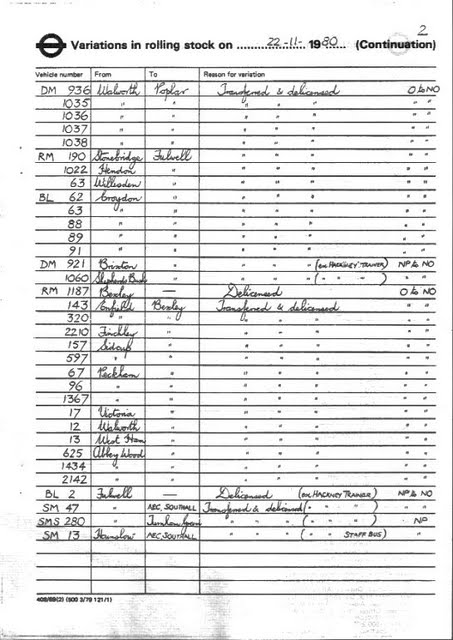 2
Variations in rolling stock on 22-11- 1980 (Continuation)
Vehicle number From To Reason for variation
DM 936 Walworth Poplar Transferred & delicensed O to NO
1035 " " " " " " "
1036 " " " " " " "
1037 " " " " " " "
1038 " " " " " " "
RM 190 Stonebridge Fulwell " " " " "
1022 Hendon " " " " " "
63 Willesden " " " " " "
BL 62 Croydon " " " " " "
63 " " " " " " "
88 " " " " " " "
89 " " " " " " "
91 " " " " " " "
DM 921 Brixton " " " " (ex HACKNEY TRAINER) NP to NO
1060 Shepherds Bush " " " " ( " " " ) " "
RM 1187 Bexley — Delicensed O to NO
143 Enfield Bexley Transferred & delicensed " "
320 " " " " " " "
2210 Finchley " " " " " "
157 Sidcup " " " " " "
597 " " " " " " "
67 Peckham " " " " " "
96 " " " " " " "
1367 " " " " " " "
17 Victoria " " " " " "
12 Walworth " " " " " "
13 West Ham " " " " " "
625 Abbey Wood " " " " " "
1434 " " " " " " "
2142 " " " " " " "
BL 2 Fulwell — Delicensed (ex HACKNEY TRAINER) NP to NO
SM 47 " AEC, SOUTHALL Transferred & delicensed ( " " ) " "
SMS 280 " Turnham Green " " " ( " " ) NP
SM 13 Hounslow AEC, SOUTHALL " " " ( " STAFF BUS) " "
408/89(2) (500 3/79 121/1)